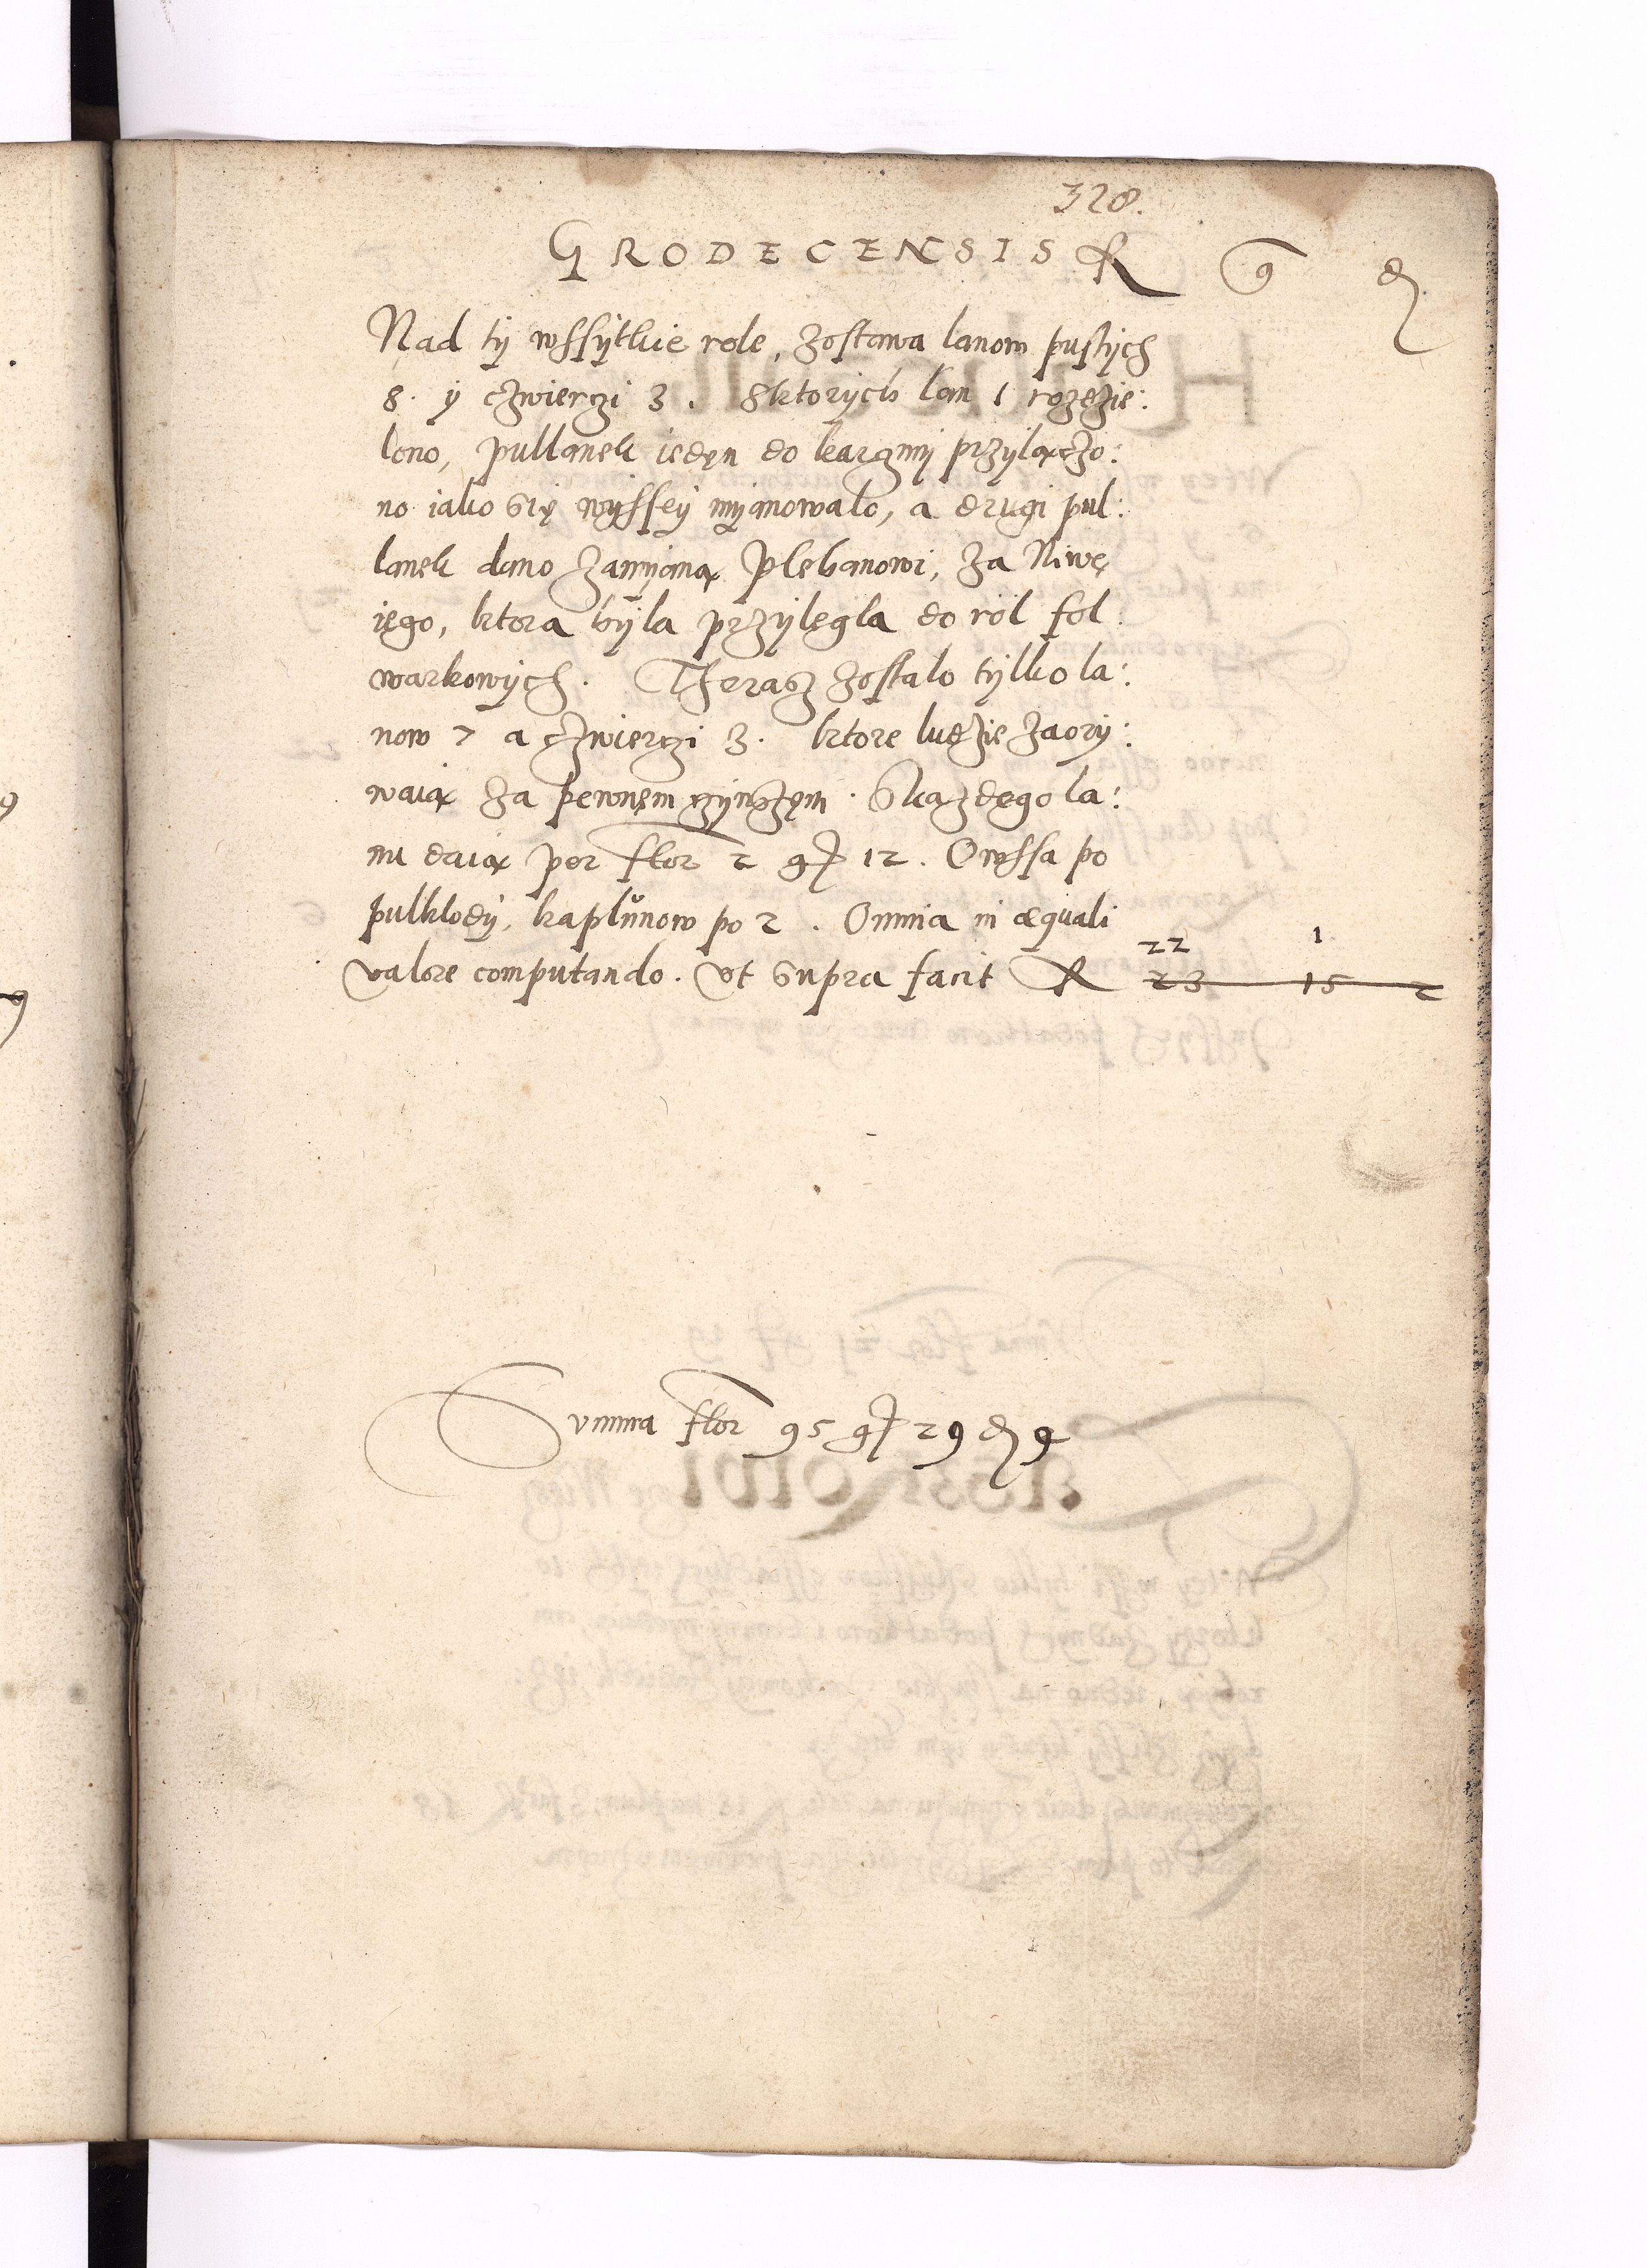 328.
GRODECENSIS R g ₰
Nad ty wssytkie role, zostawa lanow pustych
8. y czwierczi 3. Sktorych lan 1 rozdzie:
lono, pullanek iedęn do karczmy przylączo:
no iako się wyssey myanowalo, a drugi pul:
lanek dano zamyaną Plebanowi, za Niwę
ięgo, ktora byla przylęgla do rol fol:
warkowych. Therasz zostalo tylko la:
now 7 a czwierczi 3. ktore ludzie zaory:
waią za pewnęm czynszęm. Skazdęgo la:
nu daią per flor 2 gr 12. Owssa po
pulklody, kaplunow po 2. Omnia in æquali
22 1
valore computando. Vt supra facit R 23 15 2
Summa flor 95 gr 29 ₰ 9